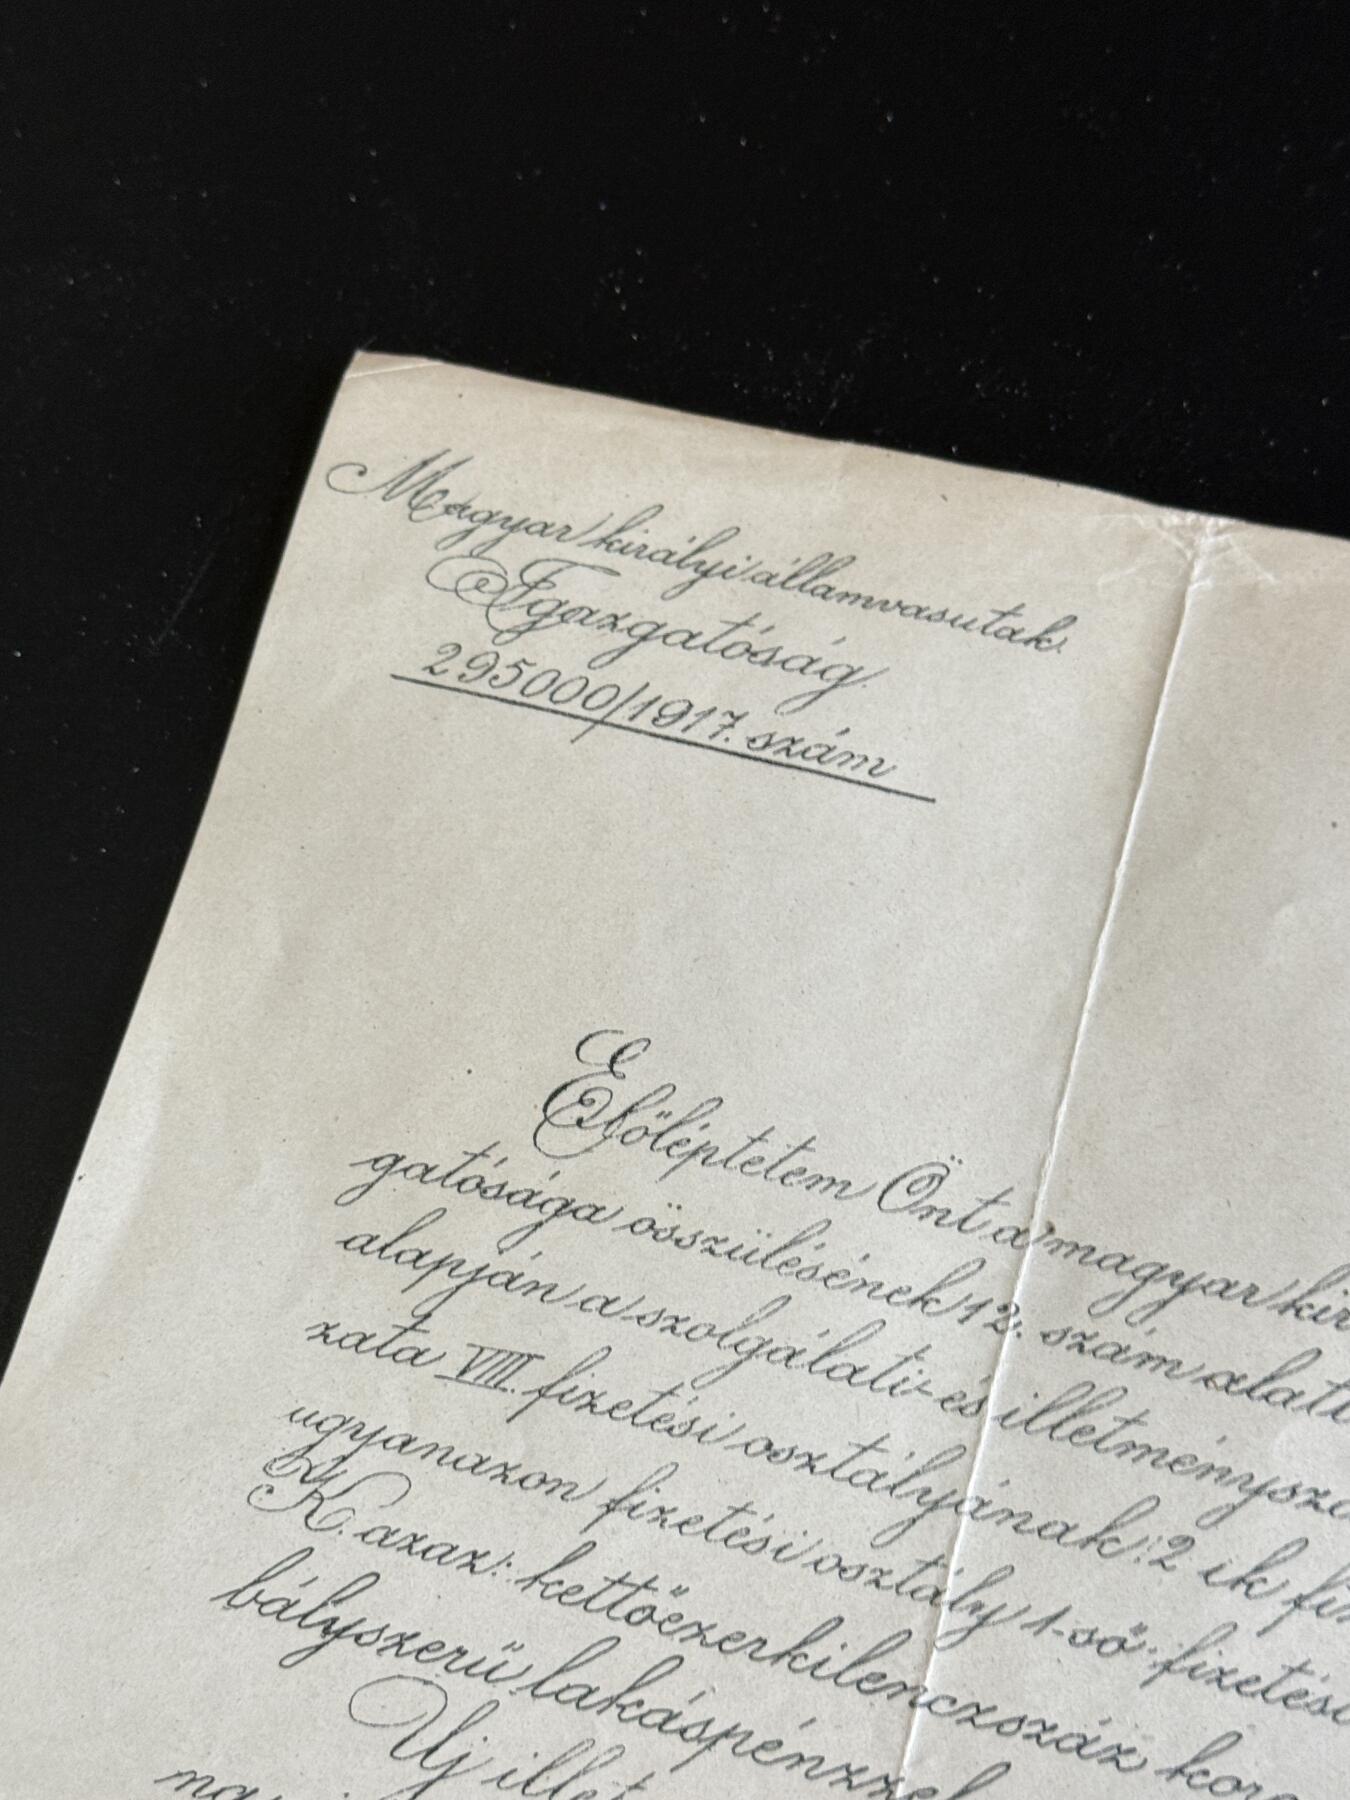 Magyar királyi államvasutak.
Igazgatóság.
295000/1917. szám
Előléptetem Önt a magyar kir
gatósága összülésének 12. szám alatt
alapján a szolgálati és illetménysza
zata VIII. fizetési osztályának 2 ik fiz
ugyanazon fizetési osztály 1-ső fizetési
K. azaz: kettőezerkilenczszáz koro
bályszerű lakáspénzzel
Uj illet